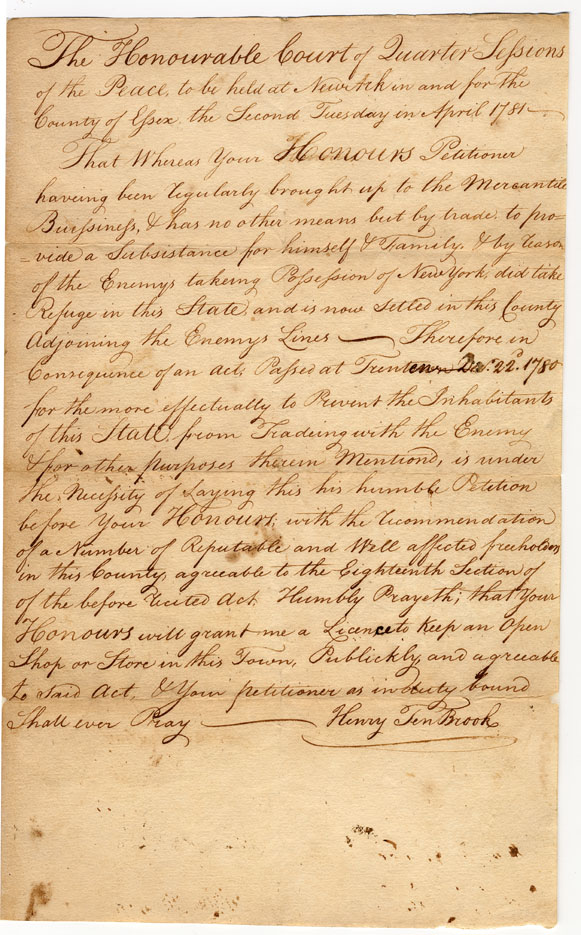 The Honourable Court of Quarter Sessions
of the Peace, to be held at Newark in and for the
County of Essex the Second Tuesday in April 1781—
That Whereas Your Honours Petitioner
haveing been regularly brought up to the Mercantile
Buissiness, & has no other means but by trade, to pro=
=vide a Subsistance for himself & Family, & by reason
of the Enemys takeing Possession of New York, did take
Refuge in this State, and is now Setled in this County
Adjoining the Enemys Lines — Therefore, in
Consequence of an act, Passed at Trenton Decr. 22d. 1780
for the more effectually to Prevent the Inhabitants
of this State, from Tradeing with the Enemy
& for other purposes therein Mentiond, is under
the, Necessity of Laying this his humble Petition
before Your Honours, with the recommendation
of a Number of Reputable and Well affected freeholders
in this County, agreeable to the Eighteenth Section of
of the before recited Act. Humbly Prayeth; that Your
Honours will grant me a Licence to keep an Open
Shop or Store in this Town, Publickly and agreeable
to Said Act, & Your petitioner as in duty bound
Shall ever Pray — Henry Ten Brook